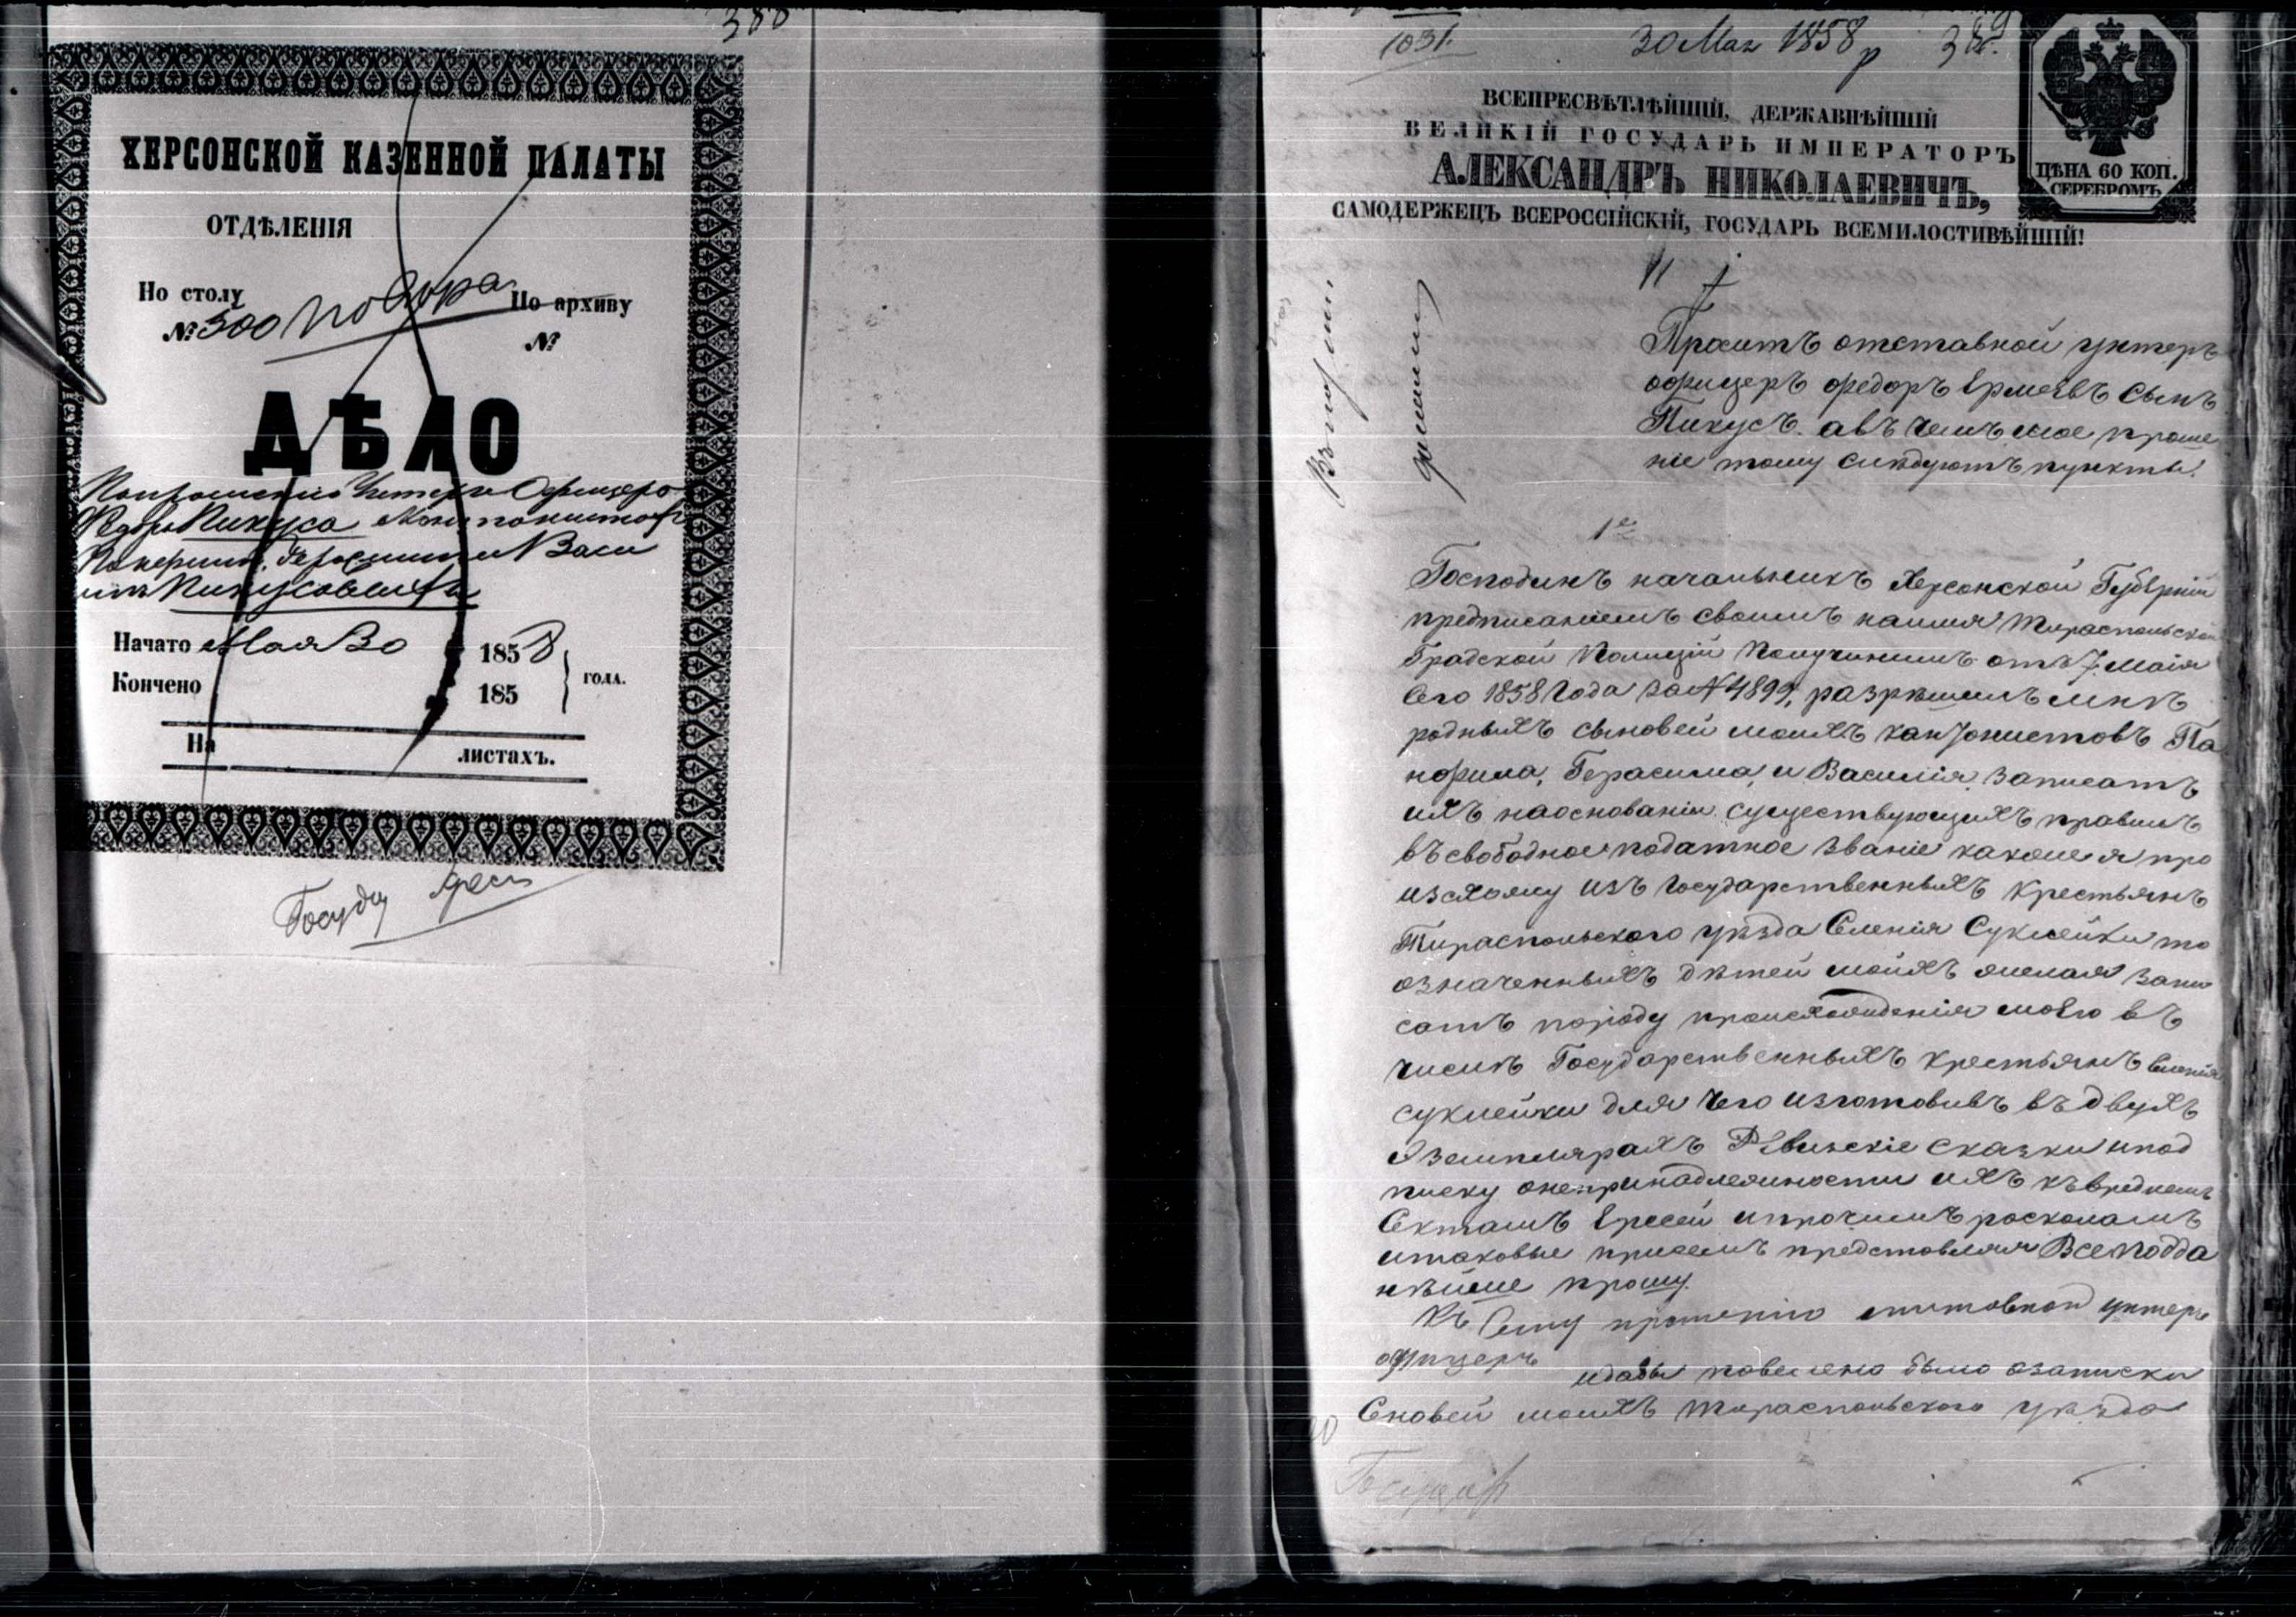 388
ХЕРСОНСКОЙ КАЗЕННОЙ ПАЛАТЫ
ОТДѢЛЕНІЯ
По столу
По архиву
№ 500
№
ДѢЛО
По прошенію Унтеръ Офицера
Федора Пикуса
Панфима, Герасима и Васи
Начато Мая 30 1858
Кончено 185
года.
На листахъ.
Госуд крес
1031.
30 Мая 1858 р
389.
ЦѢНА 60 КОП.
СЕРЕБРОМЪ
ВСЕПРЕСВѢТЛѢЙШІЙ, ДЕРЖАВНѢЙШІЙ
ВЕЛИКІЙ ГОСУДАРЬ ИМПЕРАТОРЪ
АЛЕКСАНДРЪ НИКОЛАЕВИЧЪ,
САМОДЕРЖЕЦЪ ВСЕРОССІЙСКІЙ, ГОСУДАРЬ ВСЕМИЛОСТИВѢЙШІЙ!
Проситъ отставной унтеръ
офицеръ федоръ Ермеевъ Сынъ
Пикусъ. авъ чемъ мое проше
ніе тому следуютъ пункты!
1е
Господинъ начальникъ Херсонской Губерніи
предписаніемъ своимъ наимя Тираспольской
Градской Полиціи Полученимъ отъ 7. Маія
Сего 1858 Года За № 4899, разрѣшилъ мнѣ
родныхъ сыновей моихъ кантонистовъ Па
нфима, Герасима, и Василія, Записать
ихъ наоснованіи существующихъ правилъ
въ свободное податное Званіе какоже я про
изхожу изъ Государственныхъ Крестьянъ
Тираспольского уѣзда Селенія Суклейки то
означенныхъ дѣтей моихъ желая Запи
сать породу происхожденія моего въ
числѣ Государственныхъ крестьянъ Селенія
суклейки для чего изготовивъ въ двухъ
Эземплярахъ Ревизскіе сказки ипод
писку онепринадлежности ихъ къвреднемъ
Сектамъ Ересей ипрочимъ росколамъ
итаковые присемъ представляя Всеподда
нѣйше прошу.
Къ Сему прошенію отставной унтеръ
офицеръ
идабы повелено было озаписки
Сновей моихъ Тираспольского уѣзда